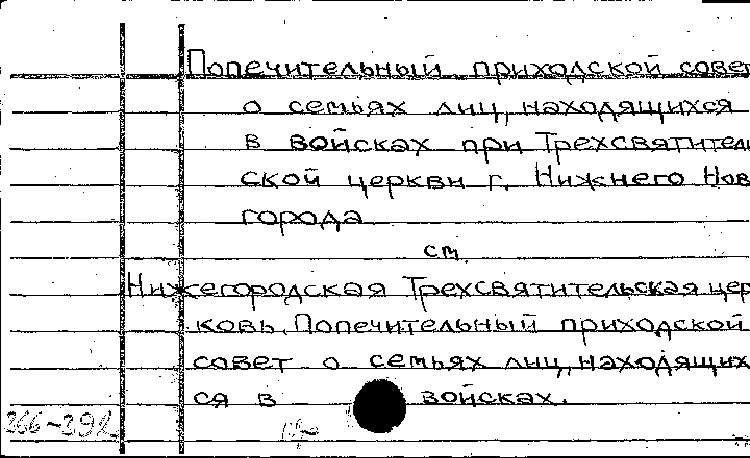 Попечительный приходской совет
о семьях лиц, находящихся
в войсках при Трехсвятитель
ской церкви г. Нижнего Нов
города
см.
Нижегородская Трехсвятительская цер
ковь. Попечительный приходской
совет о семьях лиц, находящих
ся в войсках.
266-392